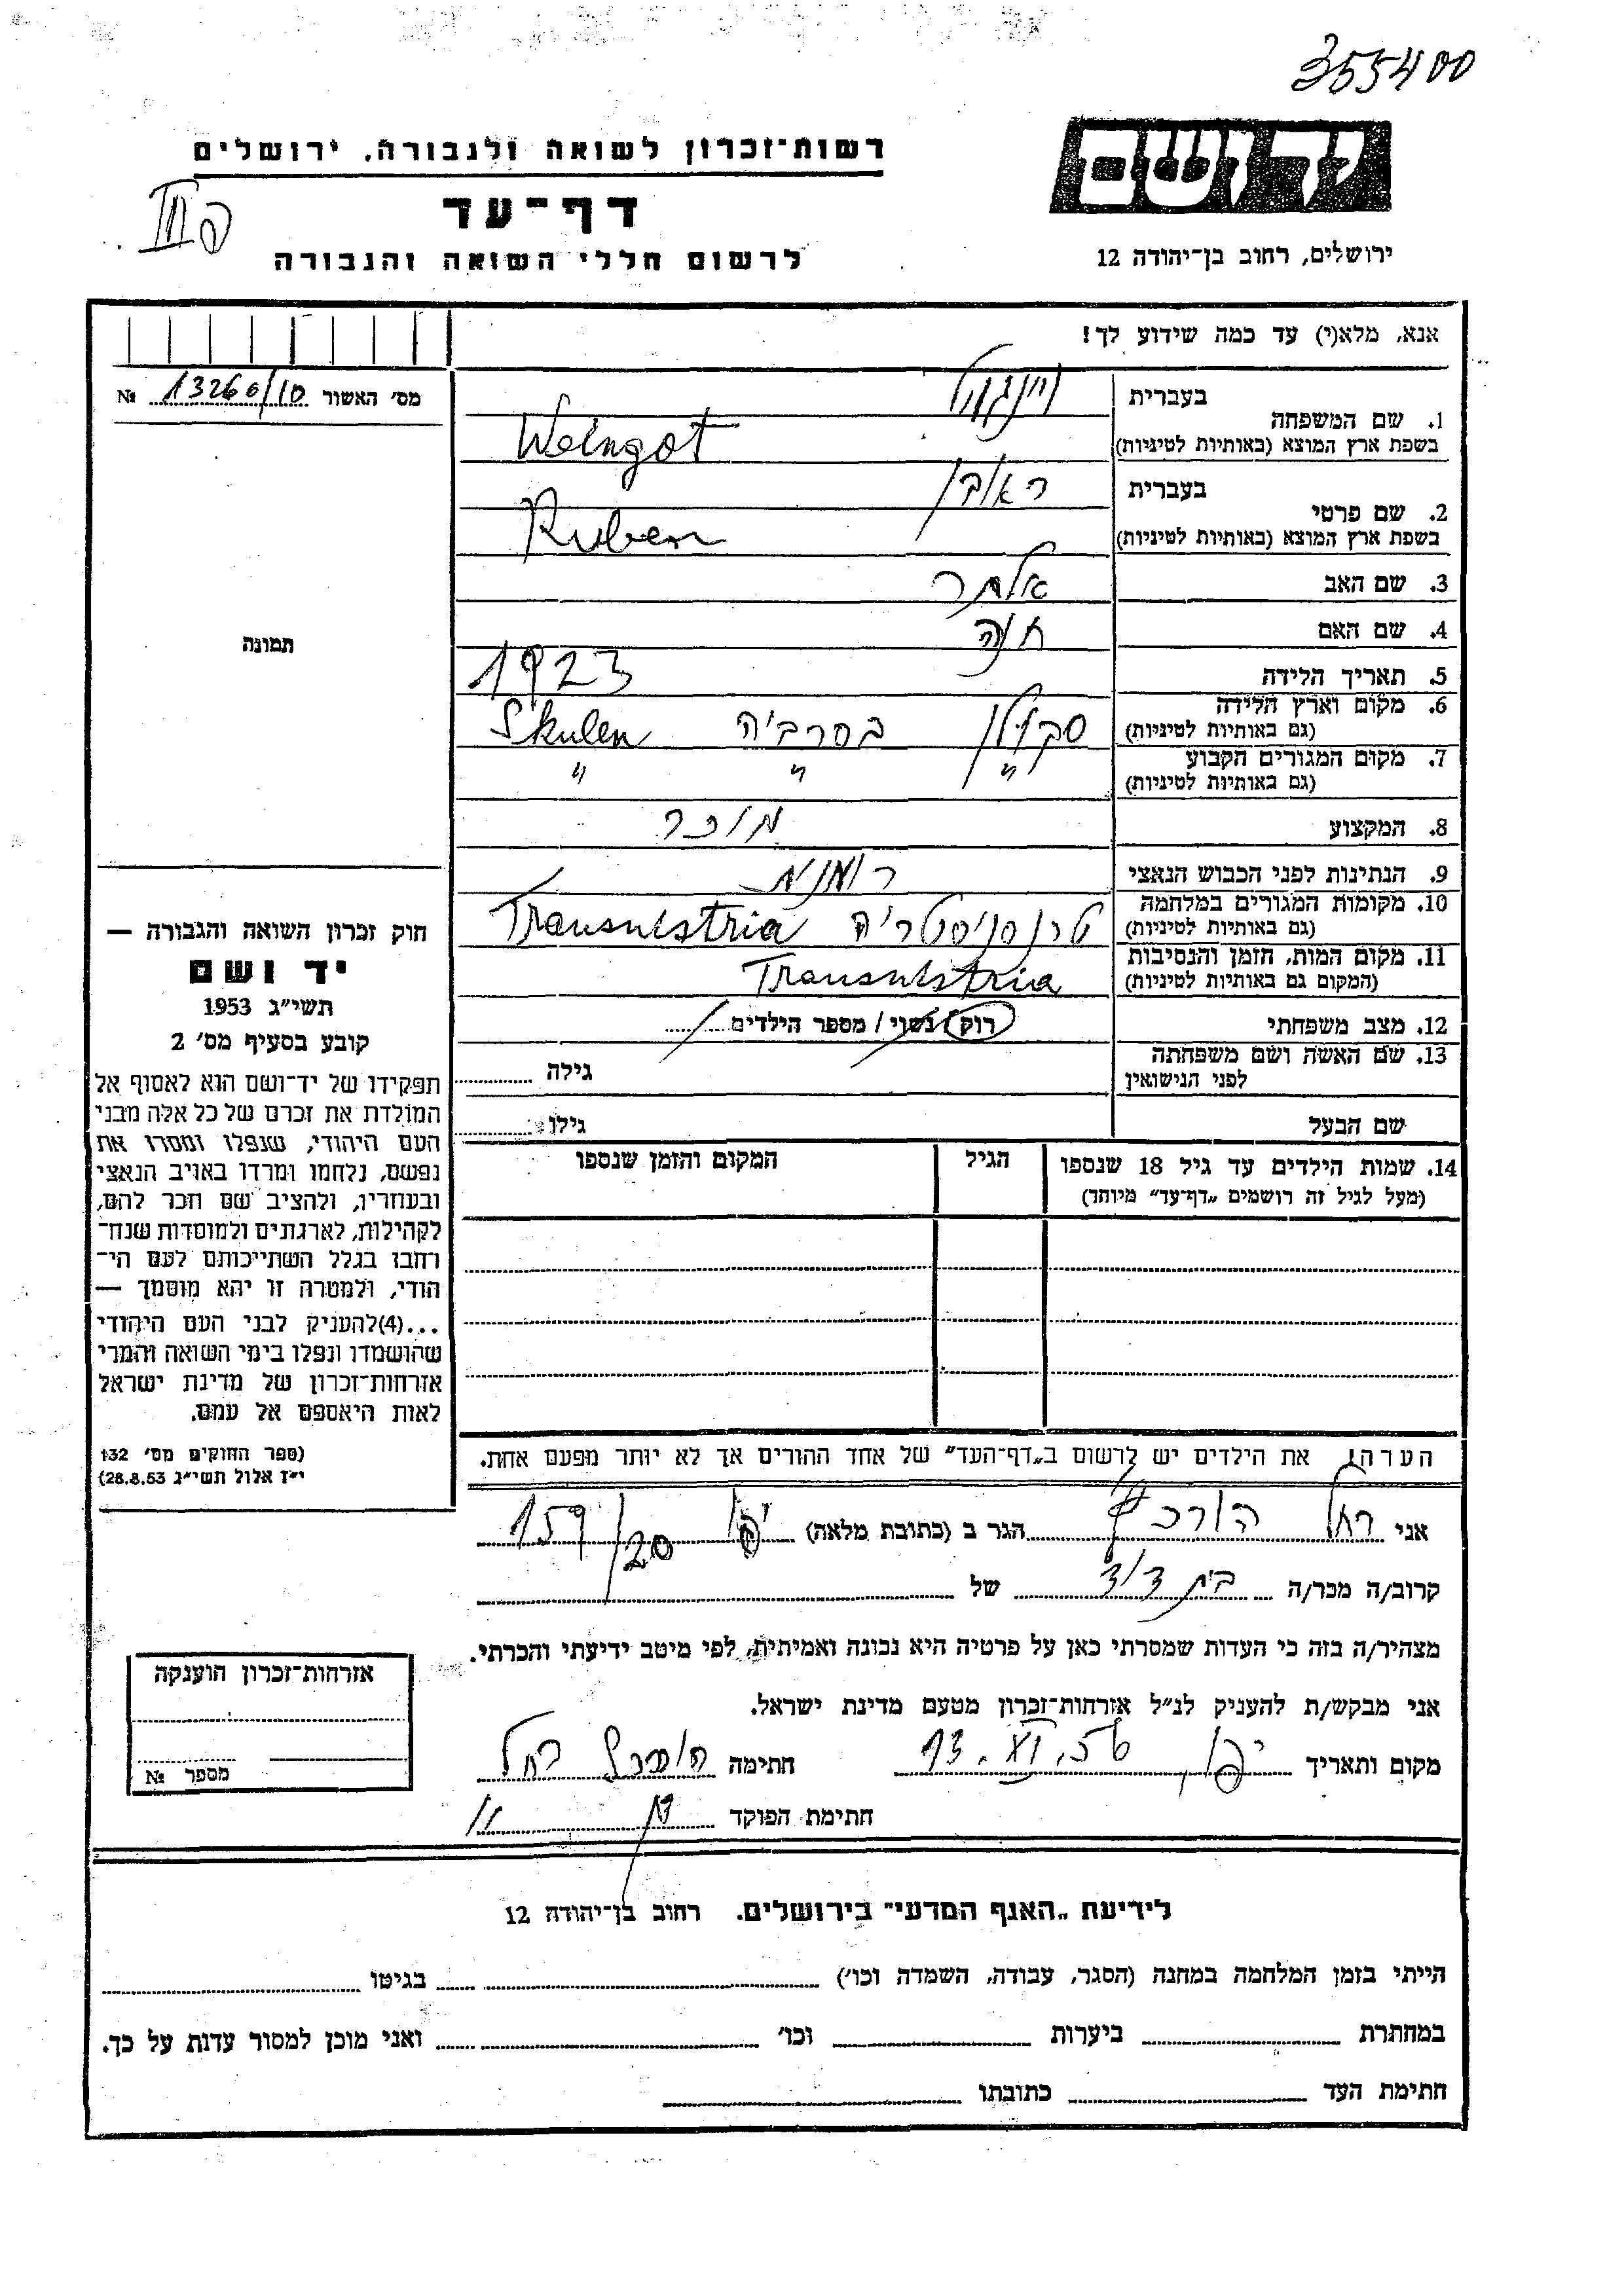 355400
רשות־זכרון לשואה ולגבורה, ירושלים
יד ושם
דף־עד
לרשום חללי השואה והגבורה
ירושלים, רחוב בן־יהודה 12
אנא, מלא(י) עד כמה שידוע לך!
מס׳ האשור 13260/10 №
תמונה
1. שם המשפחה
בעברית
בשפת ארץ המוצא (באותיות לטיניות) Weingot
2. שם פרטי
בעברית ראובן
בשפת ארץ המוצא (באותיות לטיניות) Ruben
3. שם האב אלתר
4. שם האם חנה
5. תאריך הלידה 1923
6. מקום וארץ הלידה סקולן בסרביה Skulen
(גם באותיות לטיניות)
7. מקום המגורים הקבוע " " "
(גם באותיות לטיניות)
8. המקצוע מוכר
9. הנתינות לפני הכבוש הנאצי
10. מקומות המגורים במלחמה טרנסניסטריה Transnistria
(גם באותיות לטיניות)
11. מקום המות, הזמן והנסיבות Transnistria
(המקום גם באותיות לטיניות)
12. מצב משפחתי רוק/נשוי/מספר הילדים
13. שם האשה ושם משפחתה גילה
לפני הנישואין
שם הבעל גילו
14. שמות הילדים עד גיל 18 שנספו הגיל המקום והזמן שנספו
(מעל לגיל זה רושמים „דף־עד״ מיוחד)
חוק זכרון השואה והגבורה —
יד ושם
תשי״ג 1953
קובע בסעיף מס׳ 2
תפקידו של יד־ושם הוא לאסוף אל
המולדת את זכרם של כל אלה מבני
העם היהודי, שנפלו ומסרו את
נפשם, נלחמו ומרדו באויב הנאצי
ובעוזריו, ולהציב שם וזכר להם,
לקהילות, לארגונים ולמוסדות שנח־
רבו בגלל השתייכותם לעם הי־
הודי, ולמטרה זו יהא מוסמך —
...(4)להעניק לבני העם היהודי
שהושמדו ונפלו בימי השואה והמרי
אזרחות־זכרון של מדינת ישראל
לאות היאספם אל עמם.
(ספר החוקים מס׳ 132
י״ז אלול תשי״ג 28.8.53)
הערה! את הילדים יש לרשום ב„דף־העד״ של אחד ההורים אך לא יותר מפעם אחת.
אני רחל הגר ב (כתובת מלאה) יפו 159/20
קרוב/ה מכר/ה בת דוד של
מצהיר/ה בזה כי העדות שמסרתי כאן על פרטיה היא נכונה ואמיתית, לפי מיטב ידיעתי והכרתי.
אני מבקש/ת להעניק לנ״ל אזרחות־זכרון מטעם מדינת ישראל.
מקום ותאריך יפו, 13.XI.56 חתימה רחל
חתימת הפוקד
אזרחות־זכרון הוענקה
מספר №
לידיעת „האגף המדעי״ בירושלים. רחוב בן־יהודה 12
הייתי בזמן המלחמה במחנה (הסגר, עבודה, השמדה וכו׳) בגיטו
במחתרת ביערות וכו׳ ואני מוכן למסור עדות על כך.
חתימת העד כתובתו